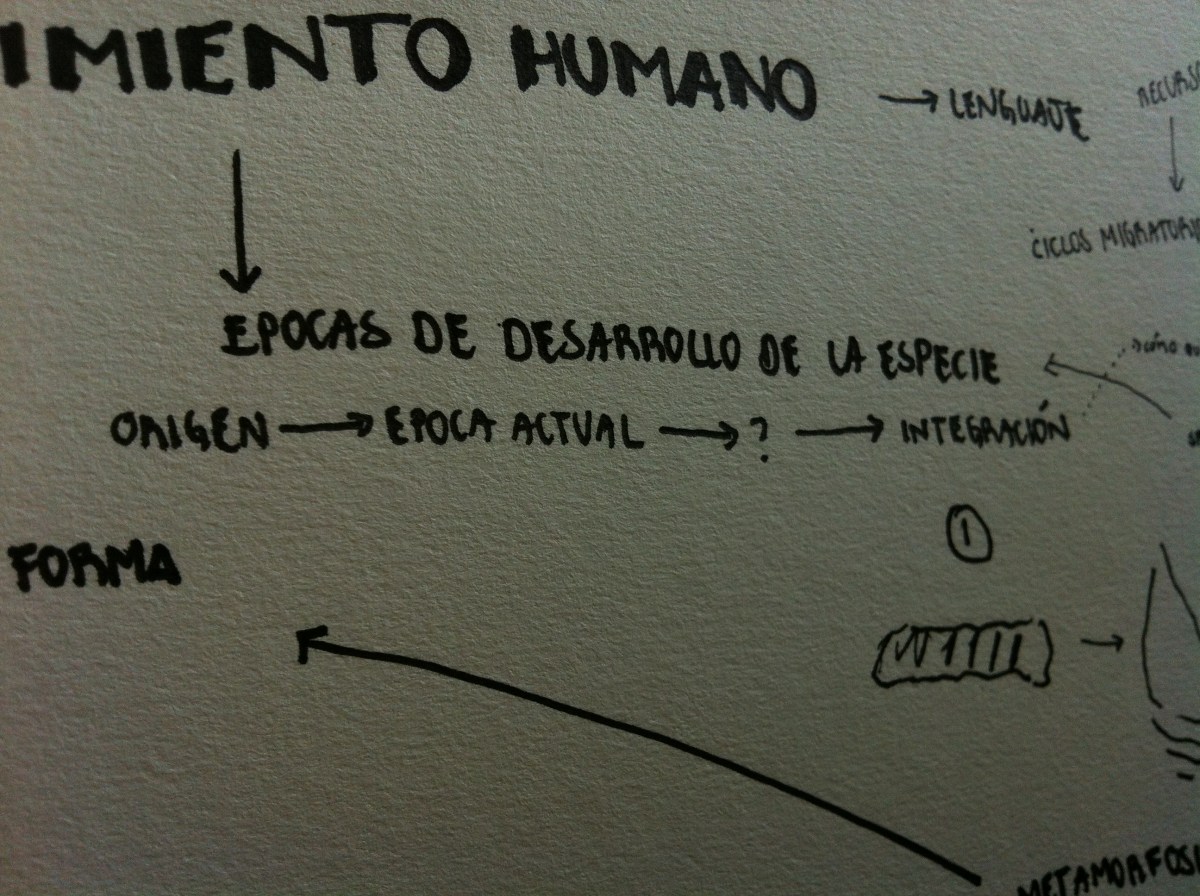 IMIENTO HUMANO → LENGUAJE
RECURSO
CICLOS MIGRATORI
EPOCAS DE DESARROLLO DE LA ESPECIE
ORIGEN → EPOCA ACTUAL → ? → INTEGRACIÓN
cómo
FORMA
1
METAMORFOSI